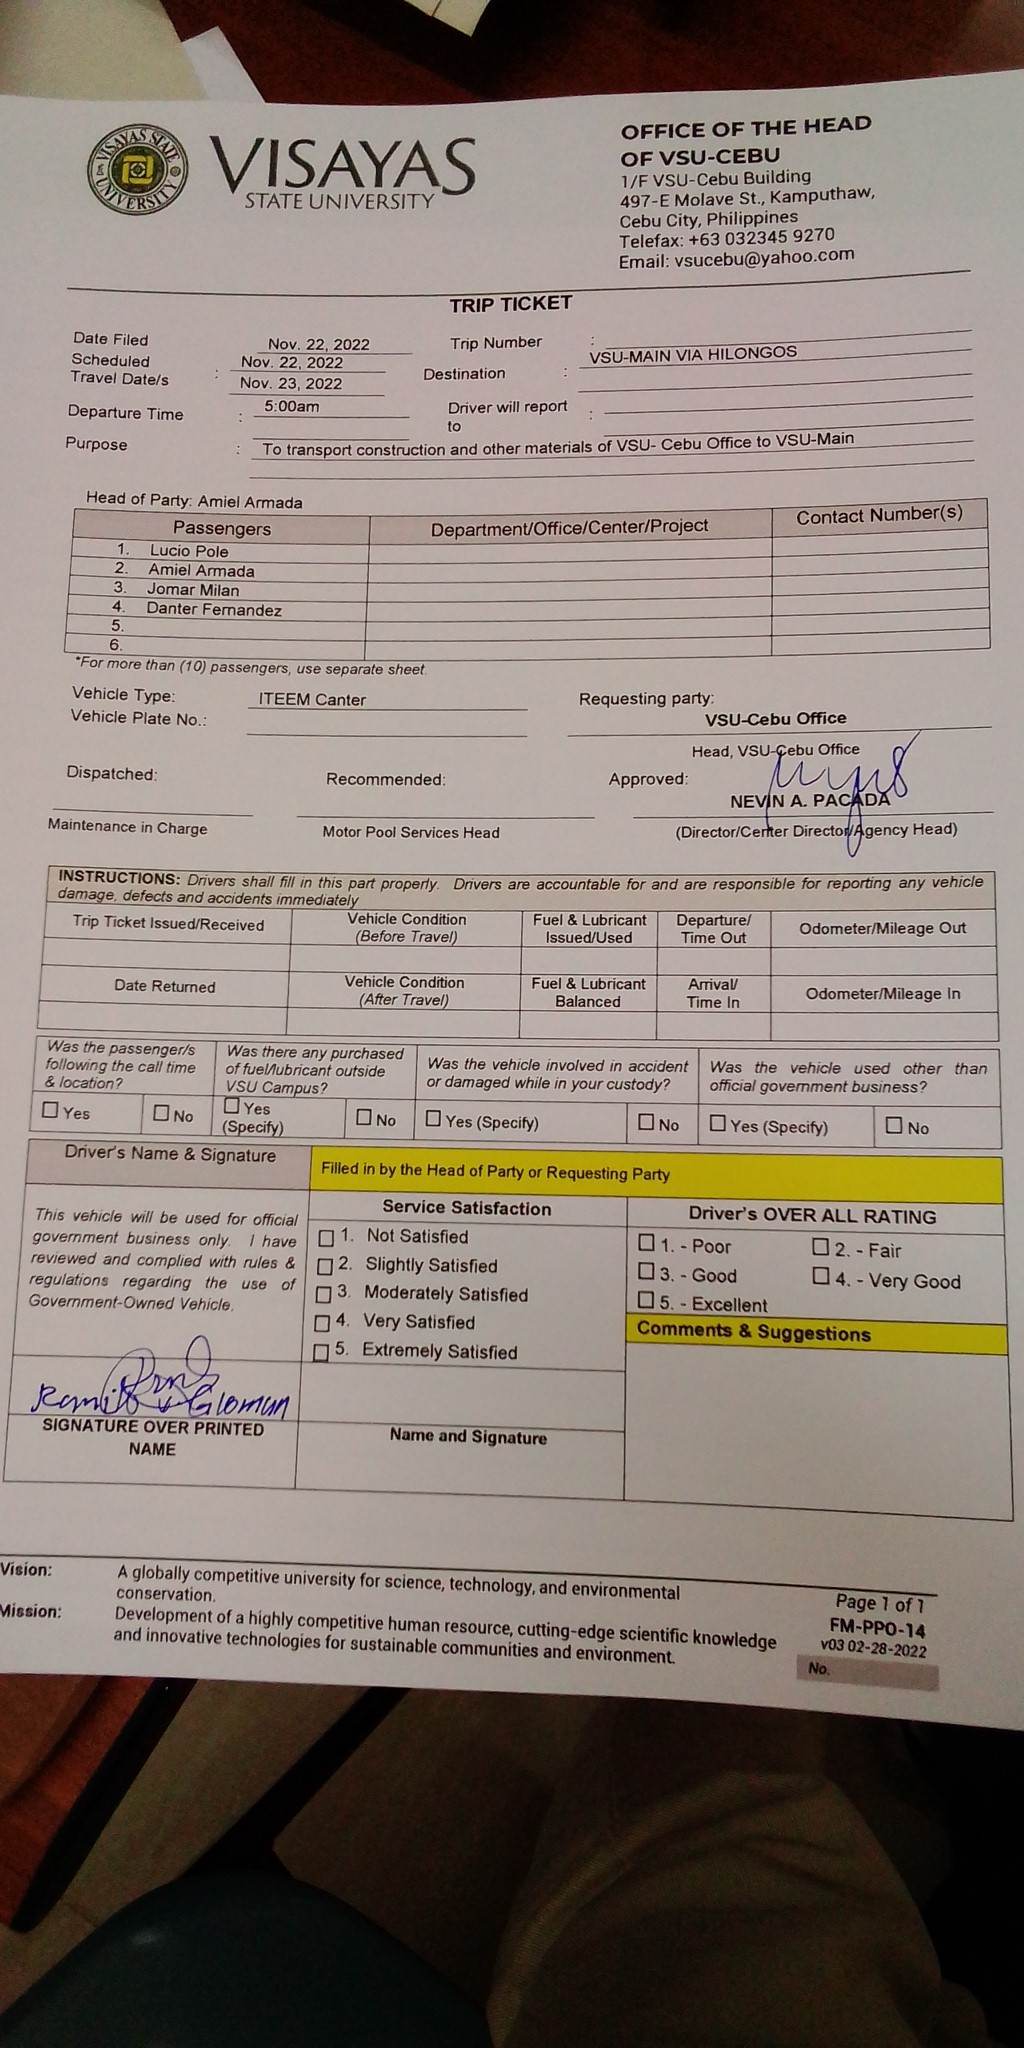 VISAYAS STATE UNIVERSITY
VISAYAS
STATE UNIVERSITY
OFFICE OF THE HEAD
OF VSU-CEBU
1/F VSU-Cebu Building
497-E Molave St., Kamputhaw,
Cebu City, Philippines
Telefax: +63 032345 9270
Email: vsucebu@yahoo.com
TRIP TICKET
Date Filed Nov. 22, 2022 Trip Number :
Scheduled Travel Date/s : Nov. 22, 2022 Nov. 23, 2022 Destination : VSU-MAIN VIA HILONGOS
Departure Time : 5:00am Driver will report to :
Purpose : To transport construction and other materials of VSU- Cebu Office to VSU-Main
Head of Party: Amiel Armada
Passengers Department/Office/Center/Project Contact Number(s)
1. Lucio Pole
2. Amiel Armada
3. Jomar Milan
4. Danter Fernandez
5.
6.
*For more than (10) passengers, use separate sheet.
Vehicle Type: ITEEM Canter Requesting party:
Vehicle Plate No.: VSU-Cebu Office
Head, VSU-Cebu Office
Dispatched: Recommended: Approved:
NEVIN A. PACADA
Maintenance in Charge Motor Pool Services Head (Director/Center Director/Agency Head)
INSTRUCTIONS: Drivers shall fill in this part properly. Drivers are accountable for and are responsible for reporting any vehicle
damage, defects and accidents immediately
Trip Ticket Issued/Received Vehicle Condition (Before Travel) Fuel & Lubricant Issued/Used Departure/ Time Out Odometer/Mileage Out
Date Returned Vehicle Condition (After Travel) Fuel & Lubricant Balanced Arrival/ Time In Odometer/Mileage In
Was the passenger/s following the call time & location? Was there any purchased of fuel/lubricant outside VSU Campus? Was the vehicle involved in accident or damaged while in your custody? Was the vehicle used other than official government business?
Yes No Yes (Specify) No Yes (Specify) No Yes (Specify) No
Driver's Name & Signature Filled in by the Head of Party or Requesting Party
This vehicle will be used for official
government business only. I have
reviewed and complied with rules &
regulations regarding the use of
Government-Owned Vehicle.
SIGNATURE OVER PRINTED
NAME
Service Satisfaction
1. Not Satisfied
2. Slightly Satisfied
3. Moderately Satisfied
4. Very Satisfied
5. Extremely Satisfied
Name and Signature
Driver's OVER ALL RATING
1. - Poor 2. - Fair
3. - Good 4. - Very Good
5. - Excellent
Comments & Suggestions
Vision: A globally competitive university for science, technology, and environmental
conservation.
Mission: Development of a highly competitive human resource, cutting-edge scientific knowledge
and innovative technologies for sustainable communities and environment.
Page 1 of 1
FM-PPO-14
v03 02-28-2022
No.